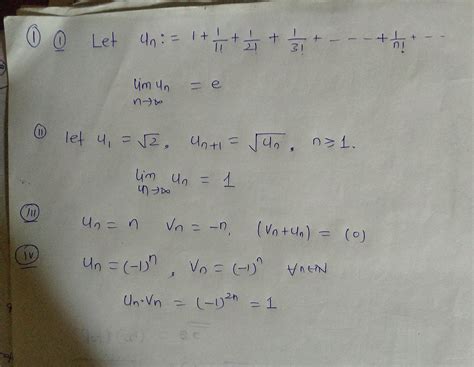 ① ① Let uₙ := 1 + 1/1! + 1/2! + 1/3! + ---- + 1/n! + --
lim uₙ = e
n→∞
⑪ let u₁ = √2, uₙ₊₁ = √uₙ, n ≥ 1.
lim uₙ = 1
n→∞
iii uₙ = n vₙ = -n, (vₙ+uₙ) = (0)
iv uₙ = (-1)ⁿ, vₙ = (-1)ⁿ ∀n∈N
uₙ·vₙ = (-1)²ⁿ = 1